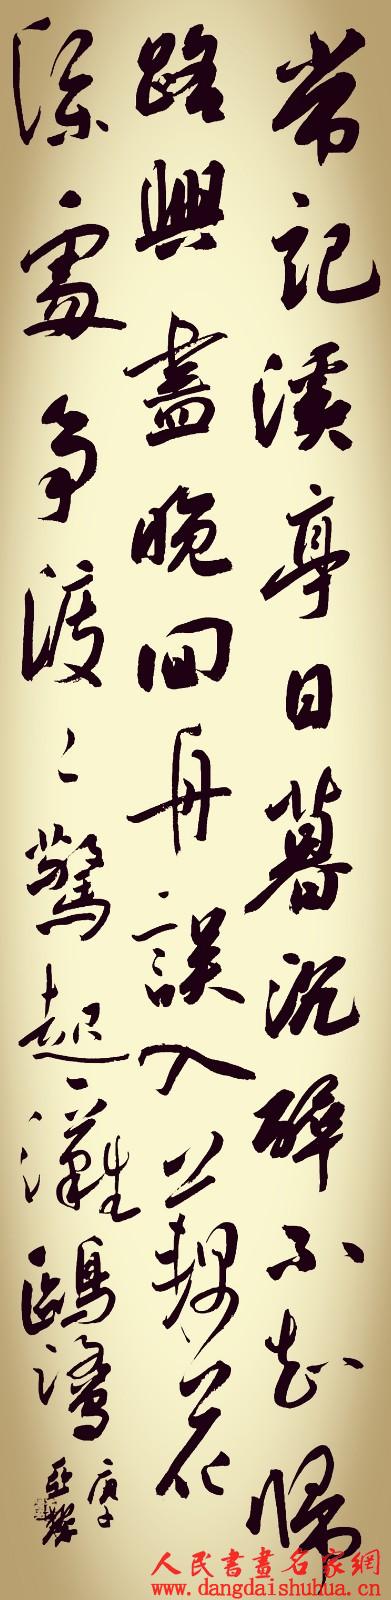 常記溪亭日暮沉醉不知歸
路興盡晚回舟誤入藕花
深處爭渡〻驚起一灘鷗鷺
庚子
亞勝
人民書畫名家網
www.dangdaishuhua.cn